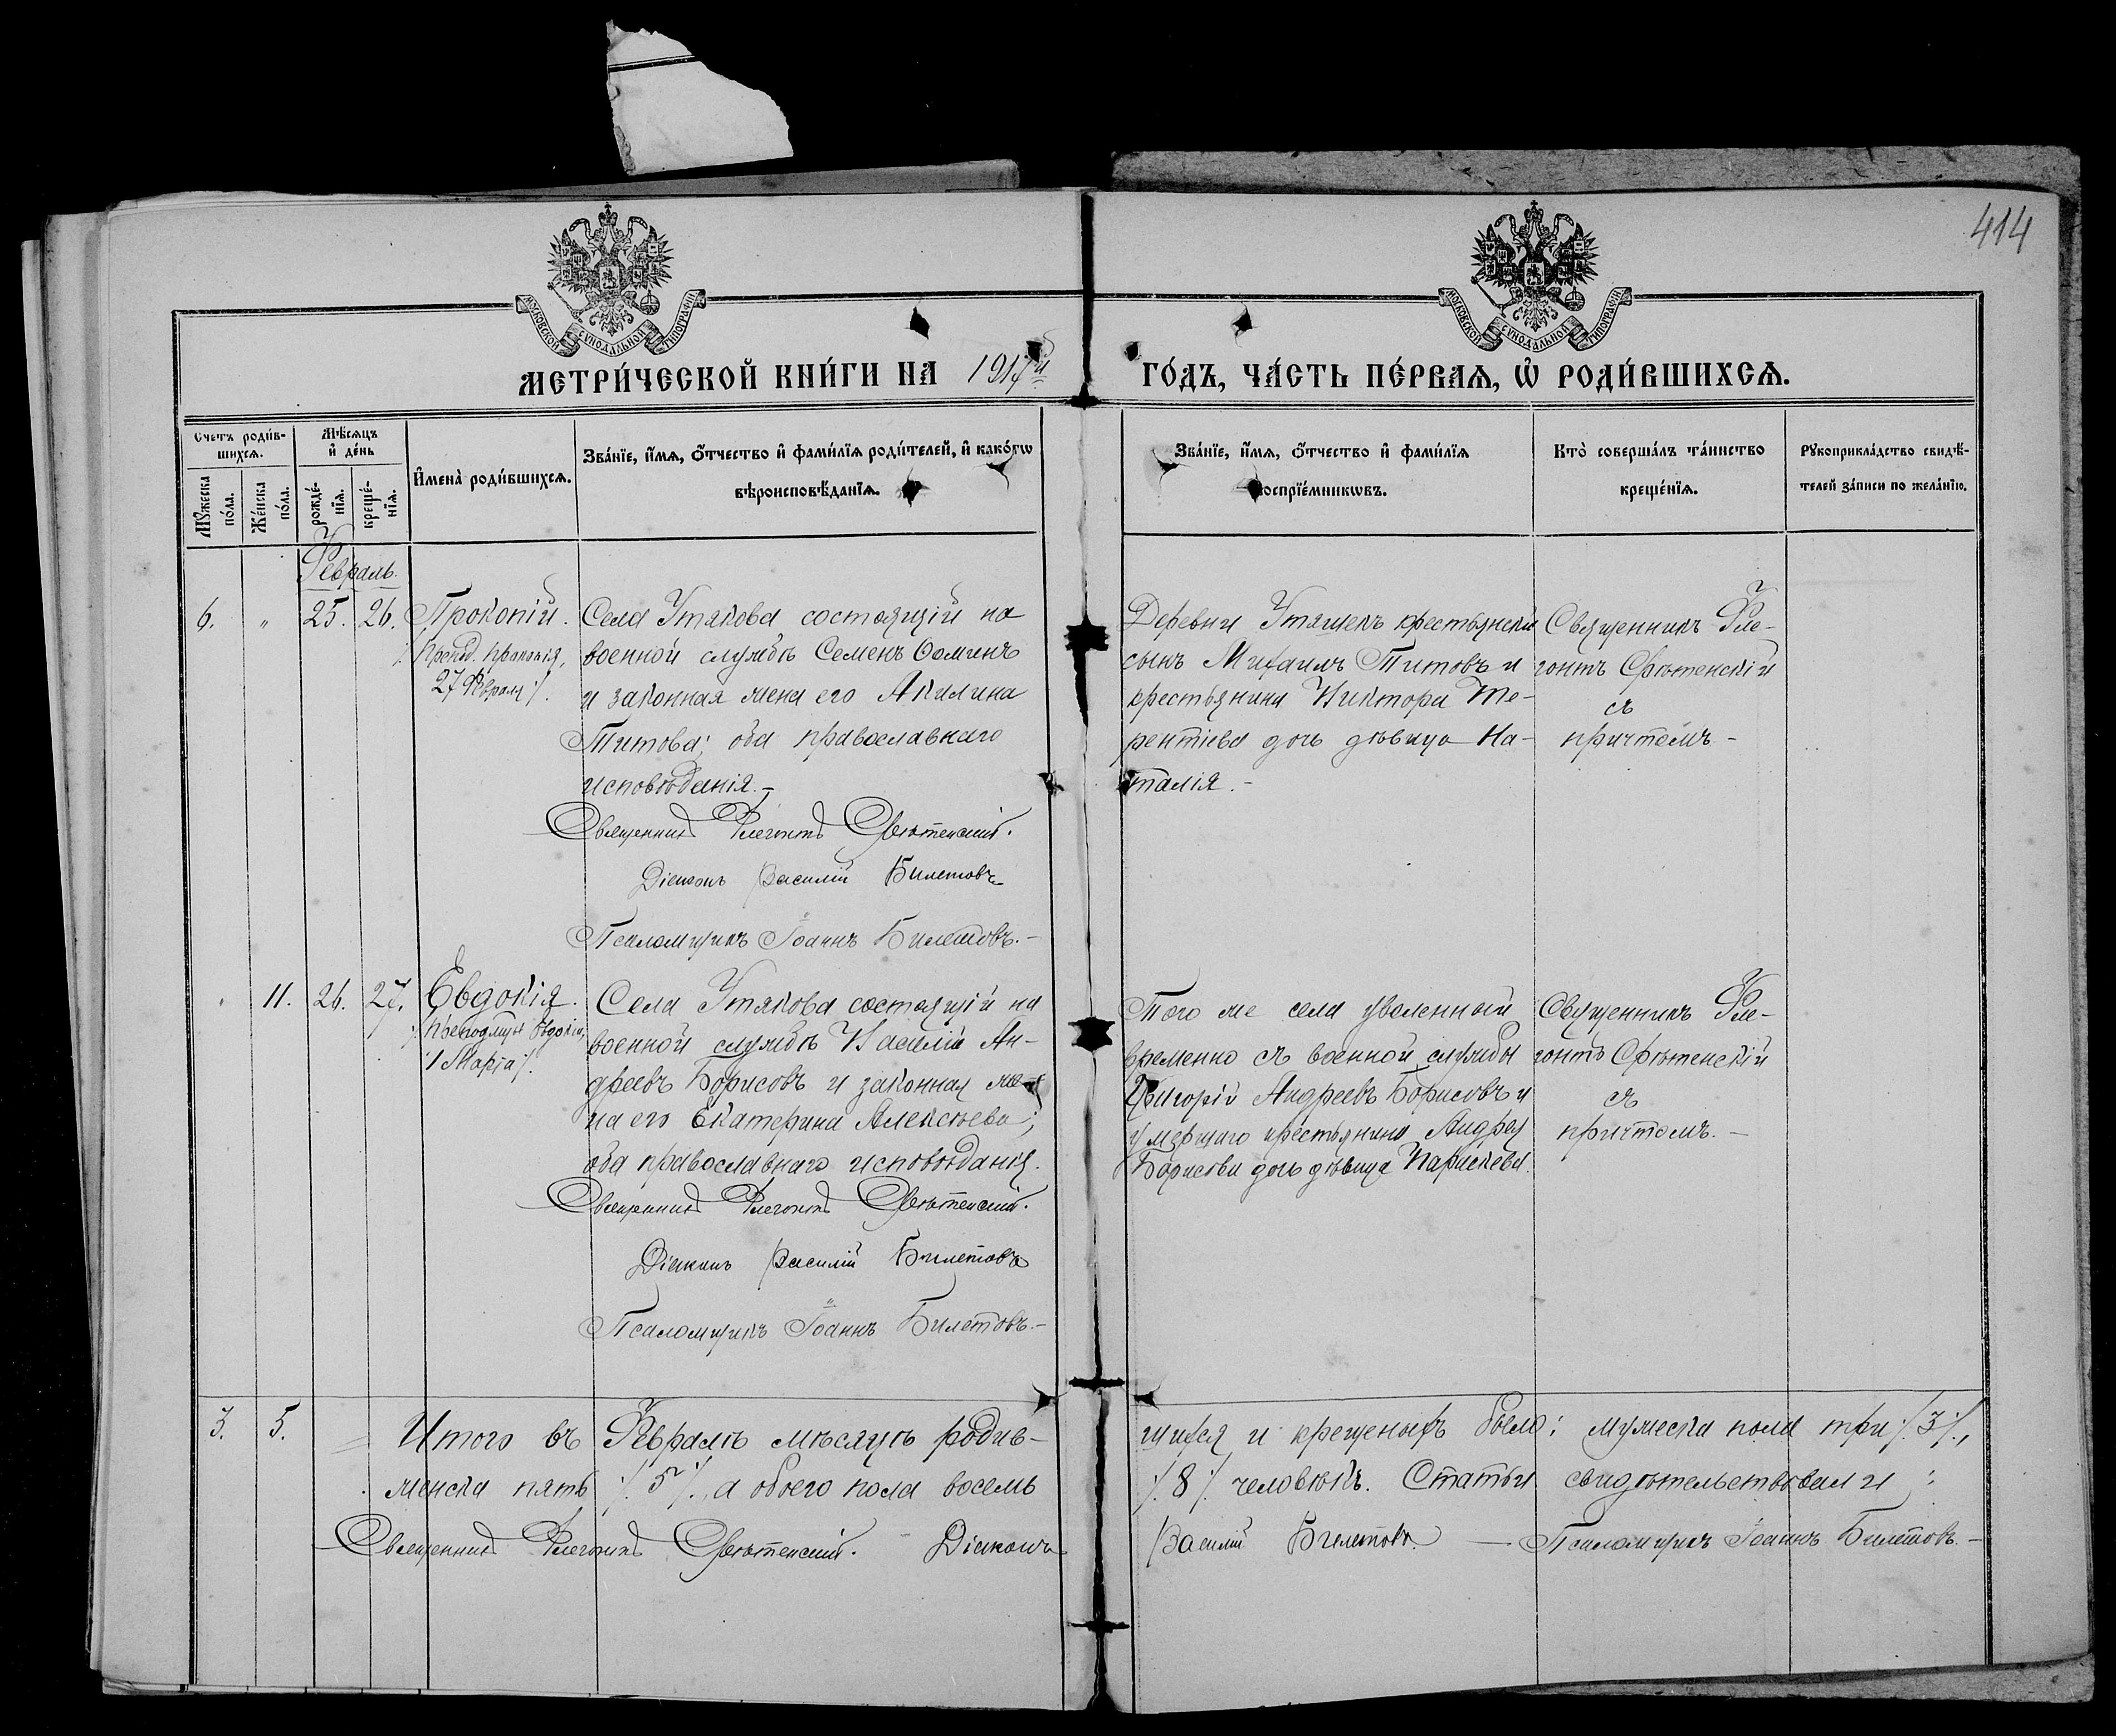 414
МОСКОВСКОЙ СѴНОДАЛЬНОЙ ТИПОГРАФІИ
МОСКОВСКОЙ СѴНОДАЛЬНОЙ ТИПОГРАФІИ
МЕТРИ́ЧЕСКОЙ КНИ́ГИ НА 1917й ГО́ДЪ, ЧА́СТЬ ПЕ́РВАѦ, Ѡ҆ РОДИ́ВШИХСѦ.
Счетъ роди́в-
шихсѧ.
Мѣ́сѧцъ
и҆ де́нь
Мꙋ́жеска
по́ла.
Же́нска
по́ла.
рожде́-
нїѧ.
креще́-
нїѧ.
И҆мена̀ роди́вшихсѧ.
Зва́нїе, и҆́мѧ, ѻ҆́тчество и҆ фами́лїѧ роди́телей, и҆ како́гѡ
вѣроисповѣ́данїѧ.
Зва́нїе, и҆́мѧ, ѻ҆́тчество и҆ фами́лїѧ
воспрїе́мникѡвъ.
Кто̀ соверша́лъ та́инство
креще́нїѧ.
Рꙋкоприкла́дство свидѣ́-
телей за́писи по жела́нїю.
Февраль.
6. " 25. 26. Прокопій.
Препод. Прокопія,
27 Февраля
Села Утякова состоящій на
военной службѣ Семенъ Ѳоминъ
и законная жена его Акилина
Титова; оба православнаго
исповѣданія.-
Священникъ Флегонтъ Срѣтенскій.
Діаконъ Василій Билетовъ
Псаломщикъ Іоаннъ Билетовъ.-
Деревни Утяшекъ крестьянскій
сынъ Михаилъ Титовъ и
крестьянина Виктора Те-
рентіева дочь дѣвица На-
талія.-
Священникъ Фле-
гонтъ Срѣтенскій
съ
причтомъ.-
" 11. 26. 27. Евдокія.
Препод. Евдокіи,
1 Марта
Села Утякова состоящій на
военной службѣ Василій Ан-
дреевъ Борисовъ и законная же-
на его Екатерина Алексѣева;
оба православнаго исповѣданія.
Священникъ Флегонтъ Срѣтенскій.
Діаконъ Василій Билетовъ
Псаломщикъ Іоаннъ Билетовъ.-
Того же села уволенный
временно съ военной службы
Григорій Андреевъ Борисовъ и
умершаго крестьянина Андрея
Борисова дочь дѣвица Параскева.
Священникъ Фле-
гонтъ Срѣтенскій
съ
причтомъ.-
3. 5. Итого въ Февралѣ мѣсяцѣ родив-
шихся и крещеныхъ было: мужеска пола три /.3/.,
женска пять /.5/., а обоего пола восемь
/.8/. человѣкъ. Статьи свидѣтельствовали:
Священникъ Флегонтъ Срѣтенскій. Діаконъ
Василій Билетовъ. — Псаломщикъ Іоаннъ Билетовъ.-